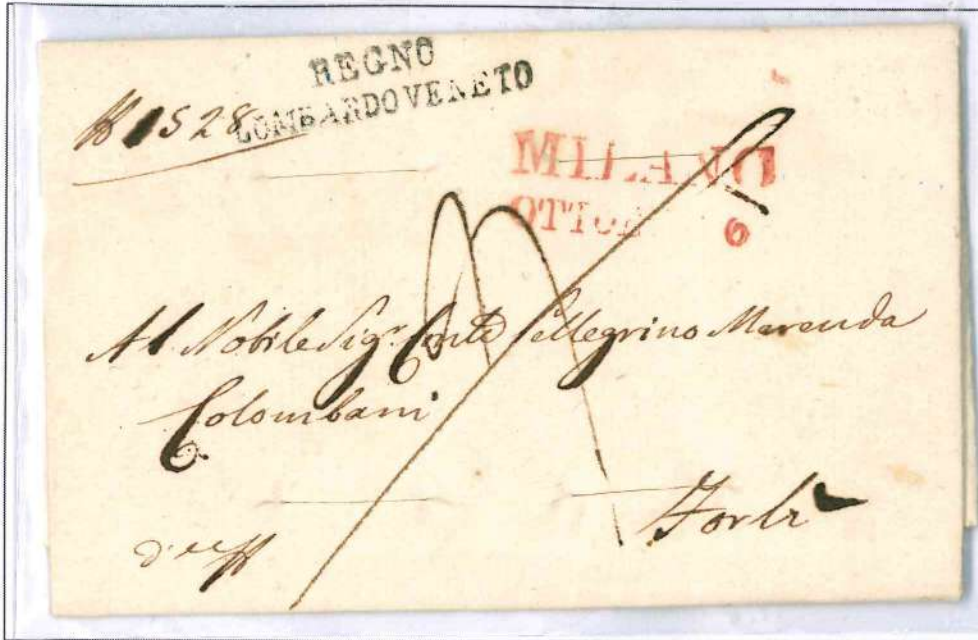 REGNO
LOMBARDOVENETO
1528
MILANO
6
Al Nobile Sigr. Conte Pellegrino Merenda
Colombani
Forlì